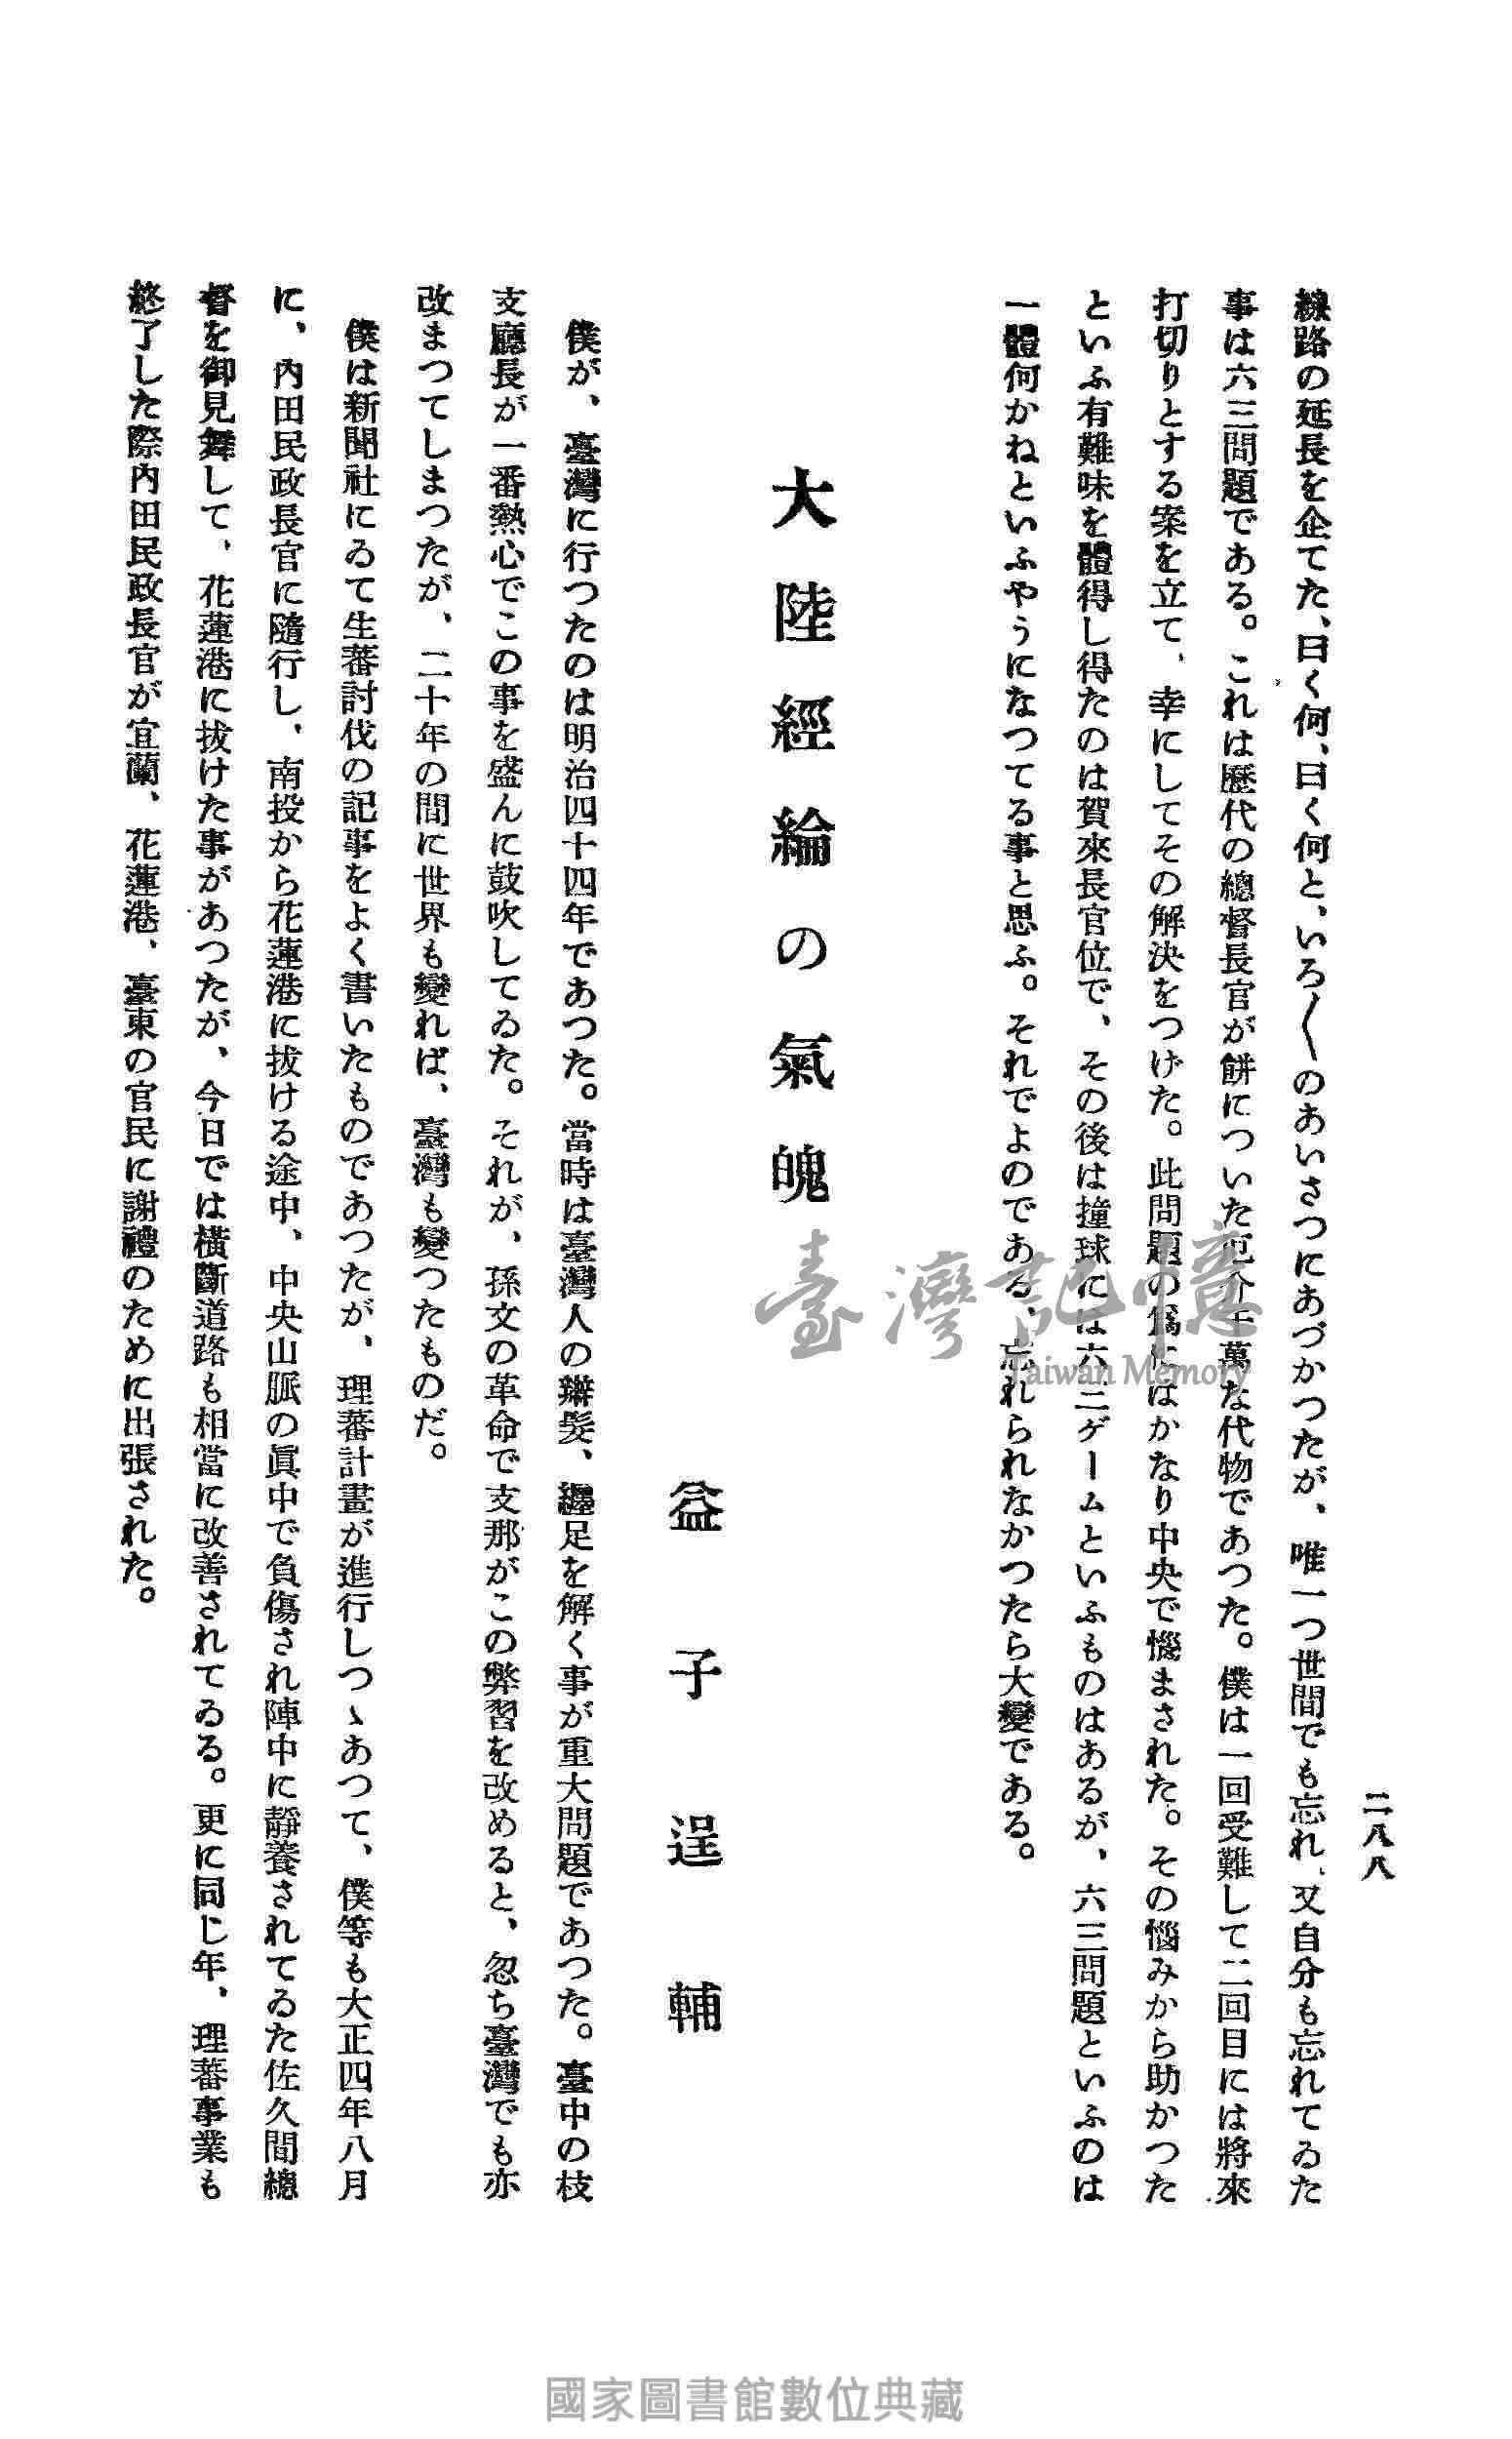 二八八
線路の延長を企てた、曰く何、曰く何と、いろ〱のあいさつにあづかつたが、唯一つ世間でも忘れ、又自分も忘れてゐた
事は六三問題である。これは歷代の總督長官が餠についた厄介千萬な代物であつた。僕は一回受難して二回目には將來
打切りとする案を立て、幸にしてその解決をつけた。此問題の爲にはかなり中央で惱まされた。その惱みから助かつた
といふ有難味を體得し得たのは賀來長官位で、その後は撞球には六三ゲームといふものはあるが、六三問題といふのは
一體何かねといふやうになつてる事と思ふ。それでよのである、忘れられなかつたら大變である。
大陸經綸の氣魄
益子逞輔
僕が、臺灣に行つたのは明治四十四年であつた。當時は臺灣人の辮髮、纒足を解く事が重大問題であつた。臺中の枝
支廳長が一番熱心でこの事を盛んに鼓吹してゐた。それが、孫文の革命で支那がこの弊習を改めると、忽ち臺灣でも亦
改まつてしまつたが、二十年の間に世界も變れば、臺灣も變つたものだ。
僕は新聞社にゐて生蕃討伐の記事をよく書いたものであつたが、理蕃計畫が進行しつゝあつて、僕等も大正四年八月
に、內田民政長官に隨行し、南投から花蓮港に拔ける途中、中央山脈の眞中で負傷され陣中に靜養されてゐた佐久間總
督を御見舞して、花蓮港に拔けた事があつたが、今日では橫斷道路も相當に改善されてゐる。更に同じ年、理蕃事業も
終了した際內田民政長官が宜蘭、花蓮港、臺東の官民に謝禮のために出張された。
臺灣記憶
Taiwan Memory
國家圖書館數位典藏